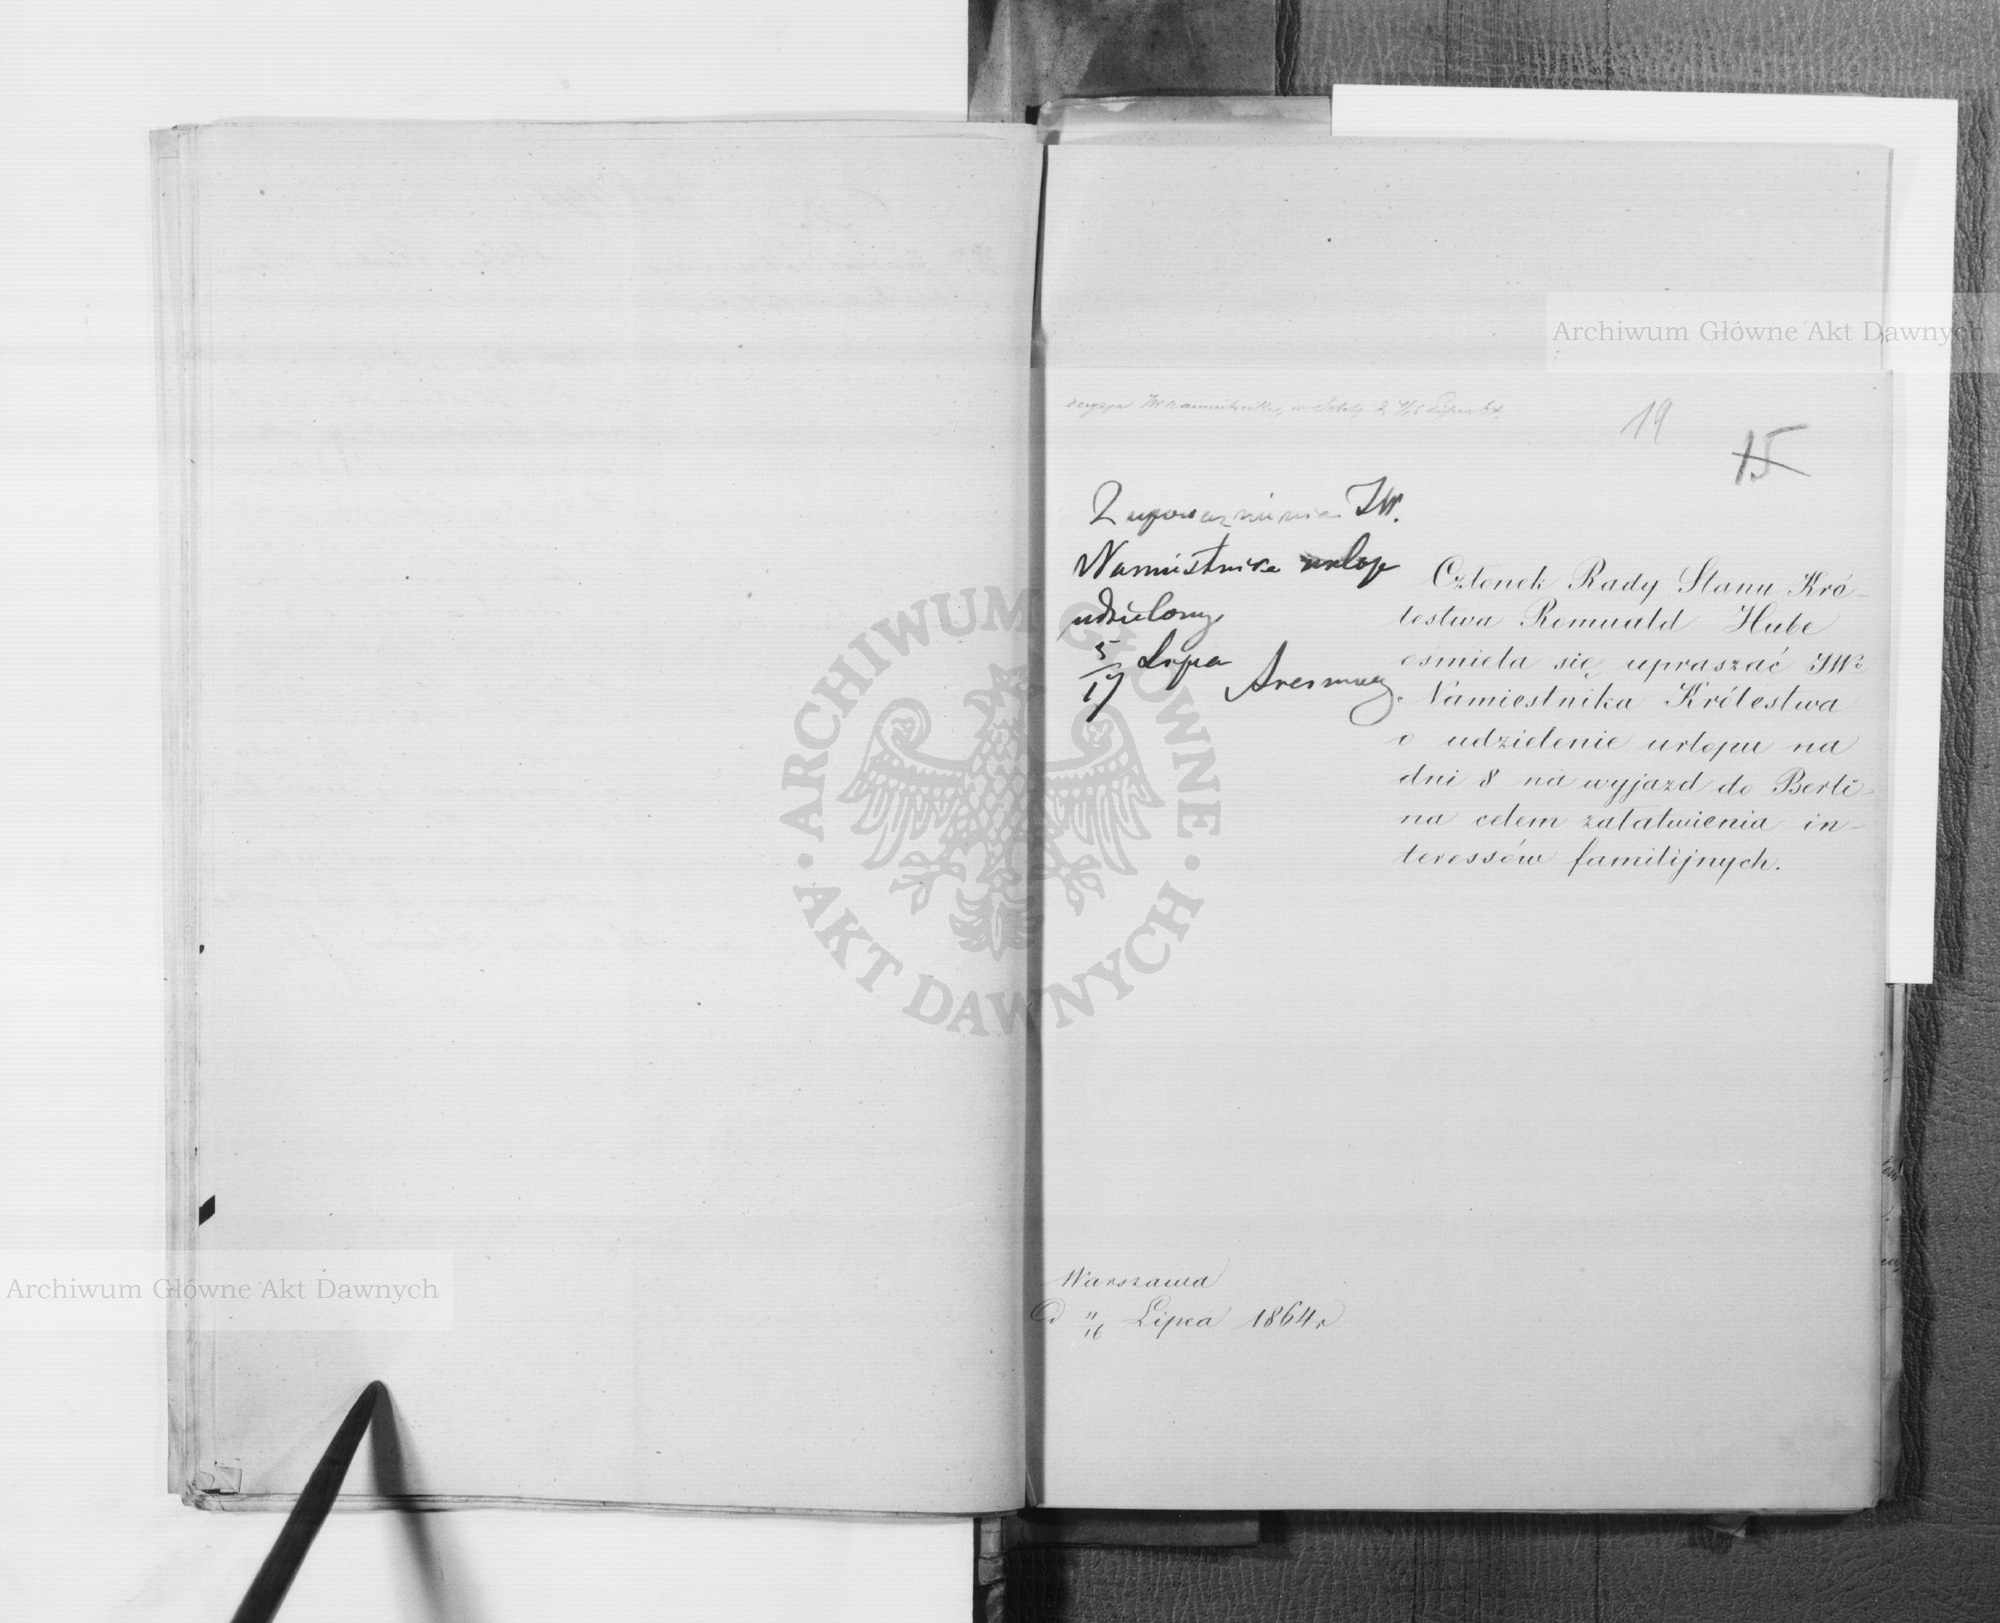 Archiwum Główne Akt Dawnych
19
15
Z upoważnienia JW.
Namiestnika urlop
udzielony
5/17 Lipca
Członek Rady Stanu Kró-
lestwa Romuald Hube
ośmiela się upraszać JWo
Namiestnika Królestwa
o udzielenie urlopu na
dni 8 na wyjazd do Berli-
na celem załatwienia in-
teressów familijnych.
Warszawa
d "/16 Lipca 1864 r
ARCHIWUM GŁÓWNE
AKT DAWNYCH
Archiwum Główne Akt Dawnych